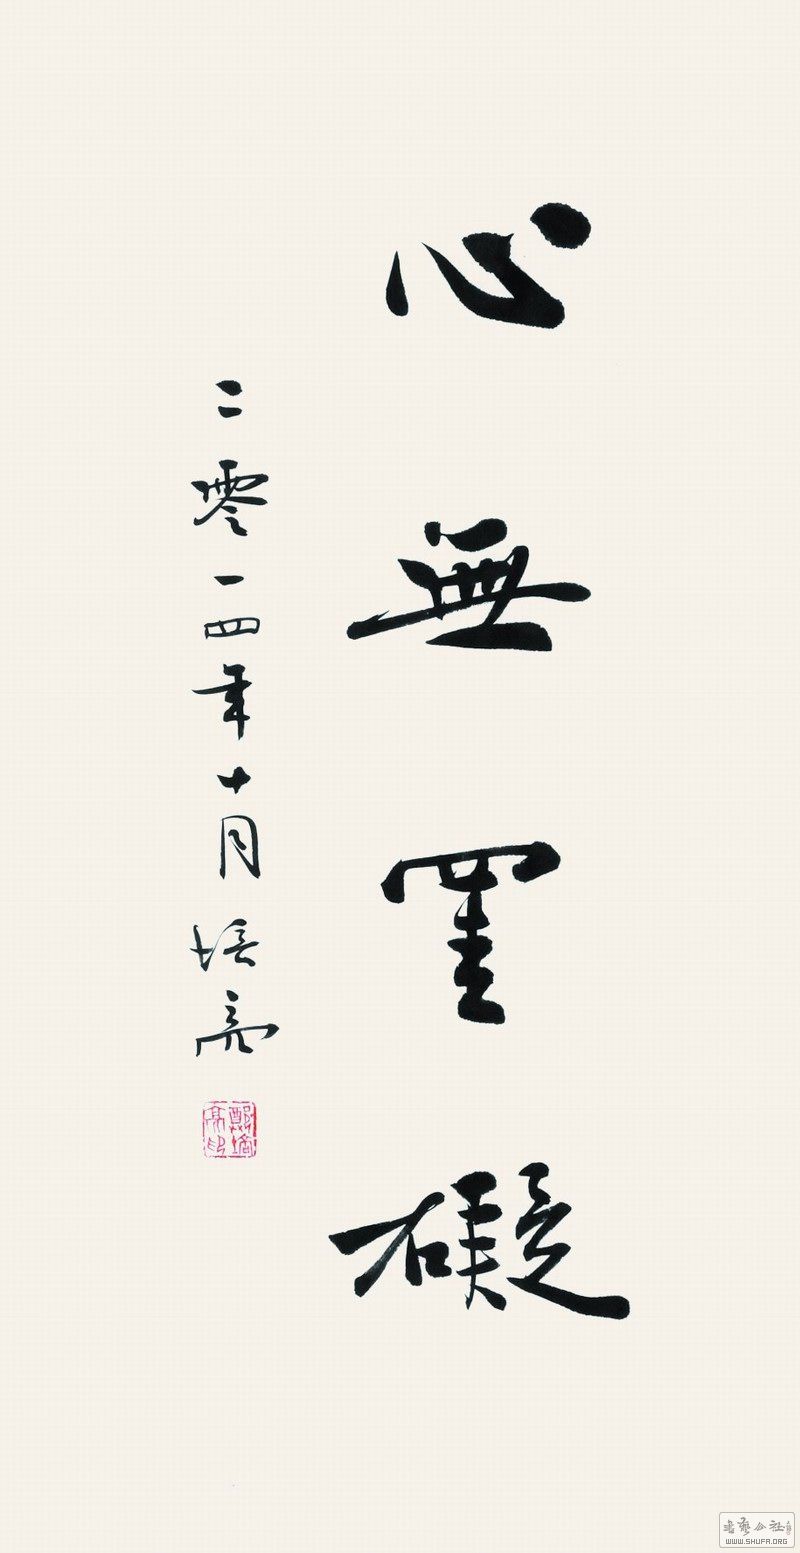 心無罣礙
二零一四年十月培亮
鄭培亮印
書藝公社
WWW.SHUFA.ORG